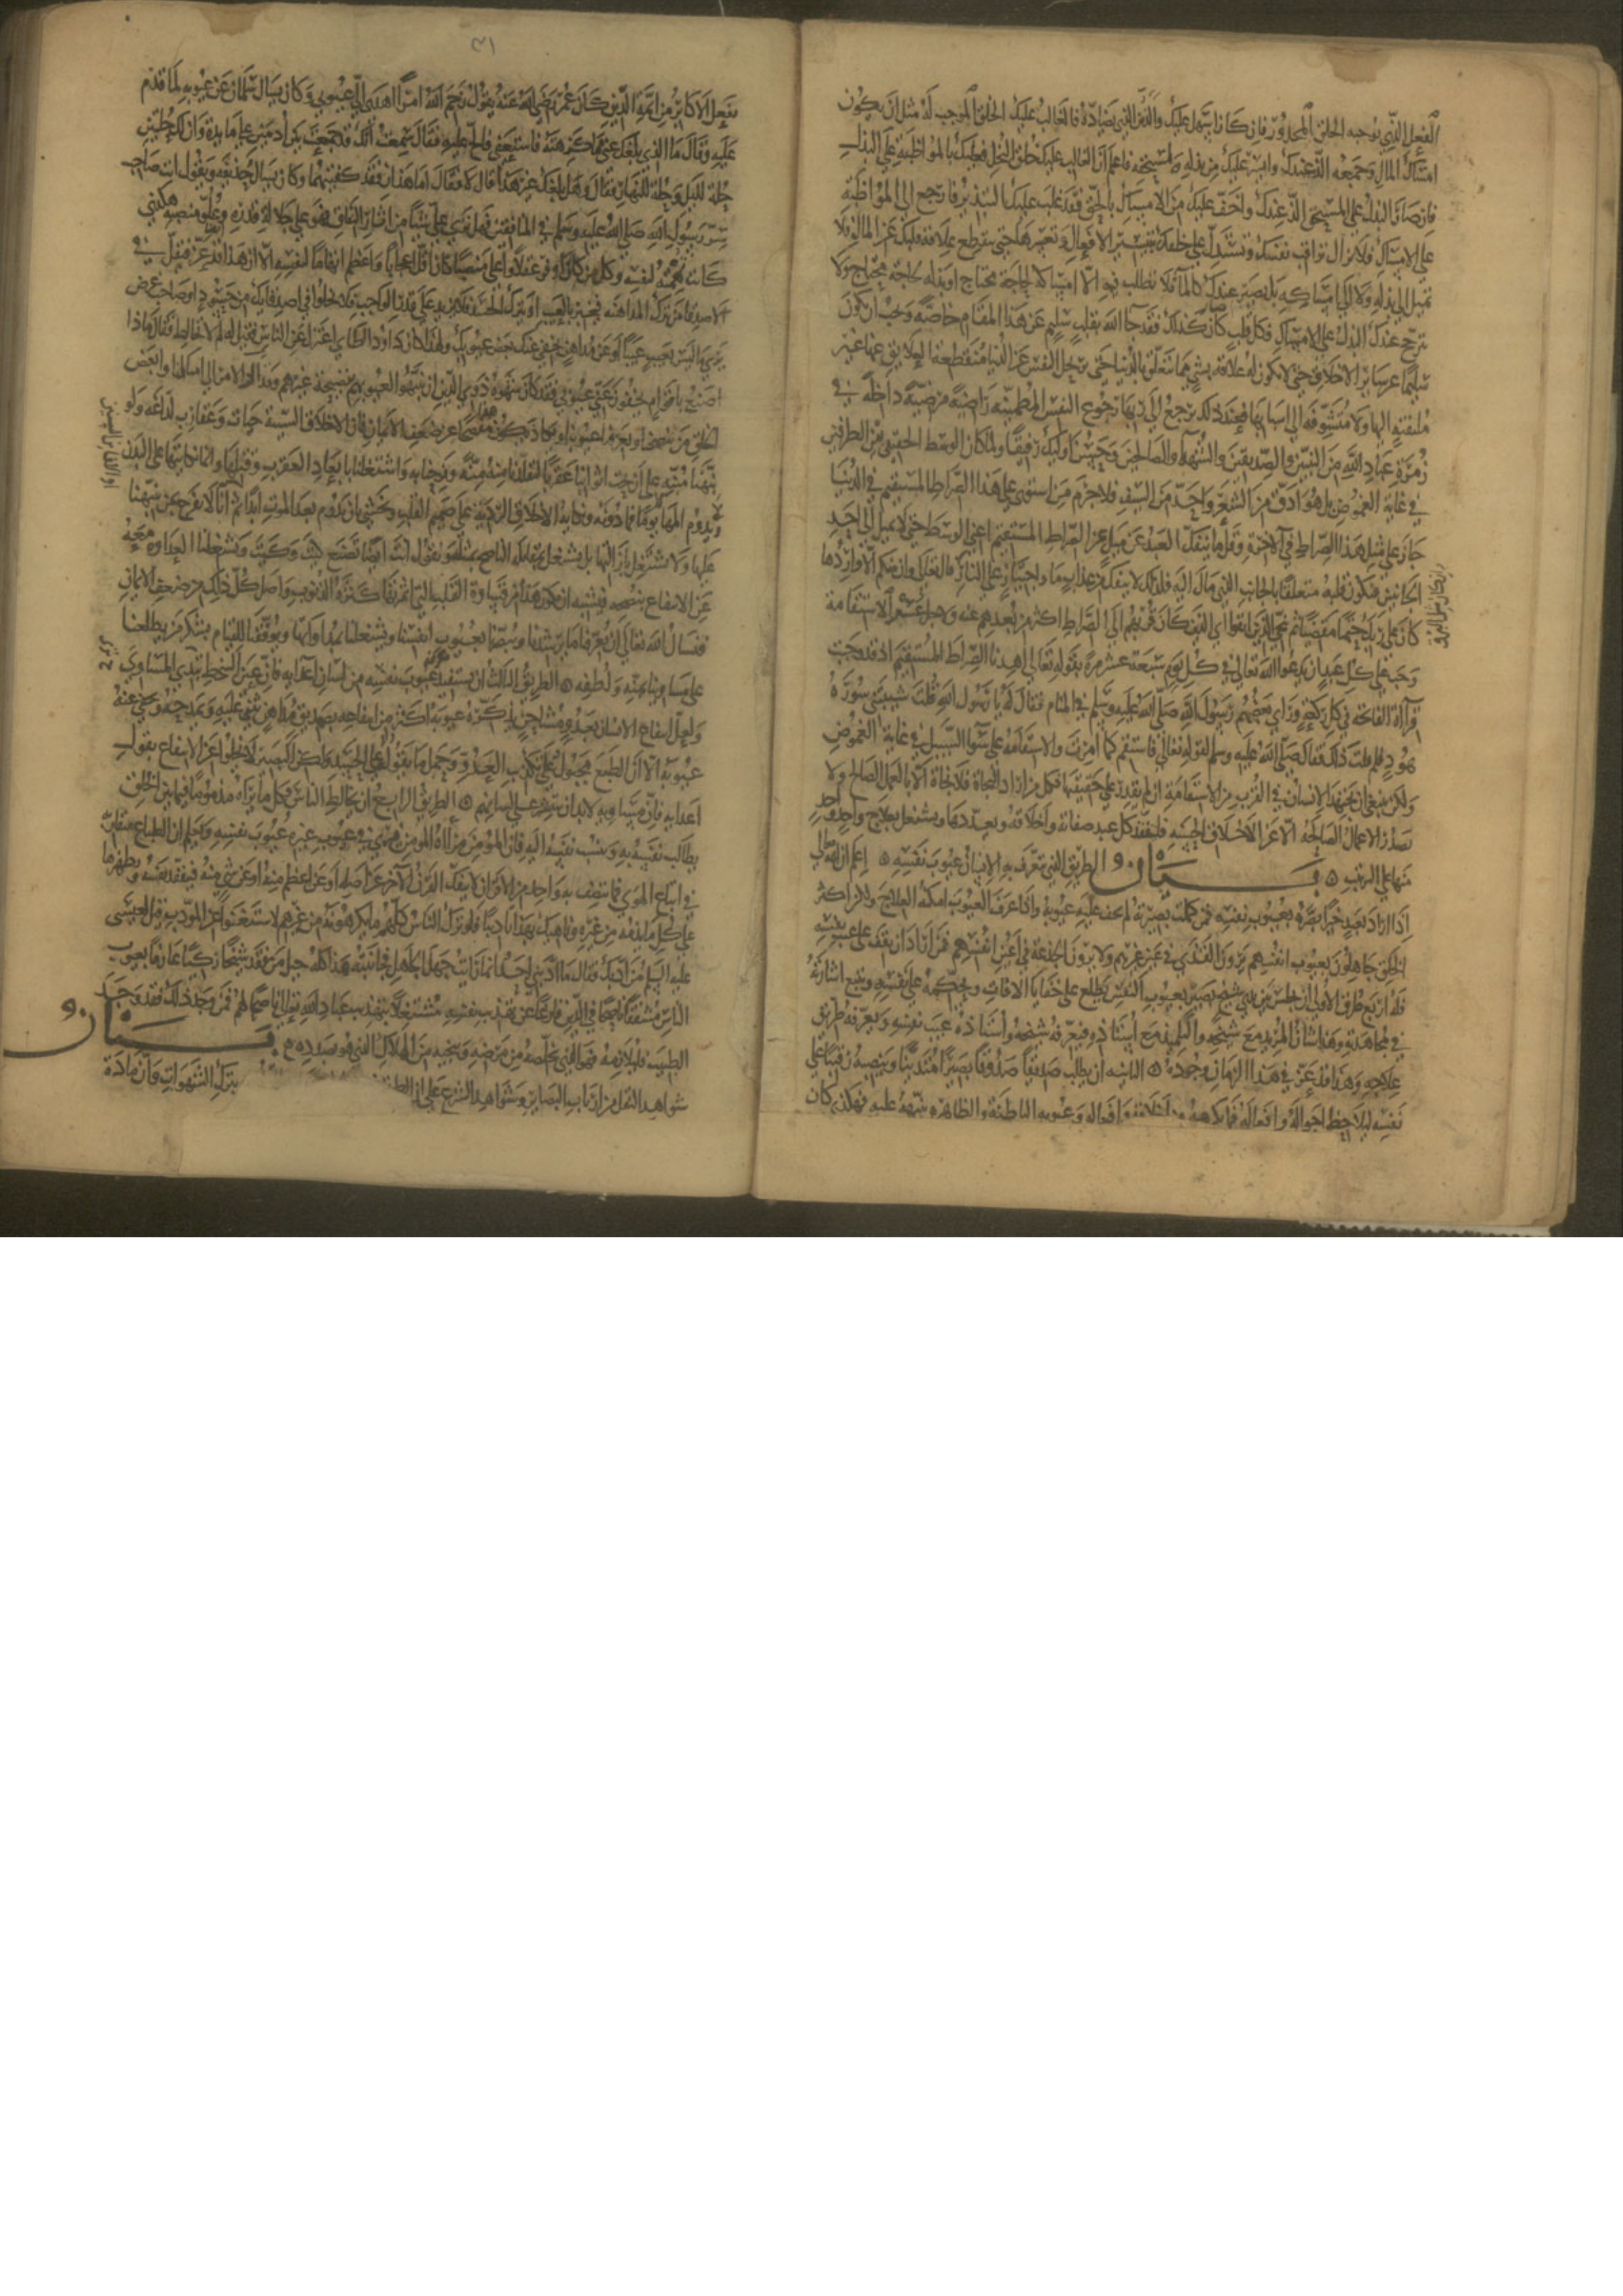 الفعل الذي يوجبه الخلق المحذور فان كان اسهل عليك والذ من الذي يضاده فالغالب عليك الخلق الموجب له مثل ان يكون
امساك المال وجمعه الذ عندك وايسر عليك من بذله لمستحقه فاعلم ان الغالب عليك خلق البخل فعليك بالمواظبة على البذل
فان صار البذل على المستحق الذ عندك واخف عليك من الامساك بالحق فقد غلب عليك التبذير فارجع الى المواظبة
على الامساك ولا تزال تراقب نفسك وتستدل على خلقك بتيسر الافعال وتعسرها حتى تنقطع علاقة قلبك عن المال فلا
تميل الى بذله ولا الى امساكه بل يصير عندك كالماء فلا تطلب فيه الا امساكه لحاجة محتاج او بذله لحاجة محتاج ولا
يترجح عندك البذل على الامساك فكل قلب صار كذلك فقد جا الله بقلب سليم عن هذا المقام خاصة ويجب ان يكون
سليما عن ساير الاخلاق حتى لا يكون له علاقة بشي مما يتعلق بالدنيا حتى ترتحل النفس عن الدنيا منقطعة العلايق عنها غير
ملتفتة اليها ولا متشوقة الى اسبابها فعند ذلك ترجع الى ربها رجوع النفس المطمينة راضية مرضية داخلة في
زمرة عباد الله من النبيين والصديقين والشهدا والصالحين وحسن اوليك رفيقا ولما كان الوسط الحقيقي بين الطرفين
في غاية الغموض بل هو ادق من الشعر واحد من السيف فلا جرم من استوى على هذا الصراط المستقيم في الدنيا
جاز على مثل هذا الصراط في الاخرة وقلما ينفك العبد عن ميل عن الصراط المستقيم اعني الوسط حتى لا يميل الى احد
الجانبين فيكون قلبه متعلقا بالجانب الذي مال اليه فلذلك لا ينفك عن عذاب ما واجتياز على النار وان كان مثل البرق قال تعالى وان منكم الا واردها
كان على ربك حتما مقضيا ثم ننجي الذين اتقوا اي الذين كان قربهم الى الصراط اكثر من بعدهم عنه ولاجل عسر الاستقامة
وجب على كل عبد ان يدعوا الله تعالى في كل يوم سبعة عشر مرة بقوله تعالى اهدنا الصراط المستقيم اذ قد وجبت
قراة الفاتحة في كل ركعة وراي بعضهم رسول الله صلى الله عليه وسلم في المنام فقال له يا رسول الله قلت شيبتني سورة
هود فلم قلت ذلك فقال صلى الله عليه وسلم لقوله تعالى فاستقم كما امرت والاستقامة على سوا السبيل في غاية الغموض
ولكن ينبغي ان يجتهد الانسان في القرب من الاستقامة ان لم يقدر على حقيقتها فكل من اراد النجاة فلا نجاة الا بالعمل الصالح ولا
تصدر الاعمال الصالحة الا عن الاخلاق الحسنة فليتفقد كل عبد صفاته واخلاقه وليعددها وليشتغل بعلاج واحد واحد
منها على الترتيب بيان الطريق الذي تعرف به الانسان عيوب نفسه اعلم ان الله تعالى
اذا اراد بعبد خيرا بصره بعيوب نفسه فمن كملت بصيرته لم تخف عليه عيوبه واذا عرف العيوب امكنه العلاج ولكن اكثر
الخلق جاهلون بعيوب انفسهم يرون القذي في عين غيرهم ولا يرون الجذعة في اعين انفسهم فمن اراد ان يقف على عيب نفسه
فله اربع طرق الاول ان يجلس بين يدي شيخ بصير بعيوب النفس يطلع على خفايا الافات ويحكمه على نفسه ويتبع اشارته
في مجاهدته وهذا شان المريد مع شيخه والتلميذ مع استاذه فيعرفه شيخه واستاذه عيب نفسه ويعرفه طريق
علاجه وهذا قد عز في هذا الزمان وجوده الثانيه ان يطلب صديقا صدوقا بصيرا متدينا وينصبه رقيبا على
نفسه ليلاحظ احواله وافعاله فما يكرهه من اخلاقه وافعاله وعيوبه الباطنة والظاهره ينبهه عليه فهكذي كان
٣١
يفعل الاكابر من ايمة الدين كان عمر رضي الله عنه يقول رحم الله امرا اهدى الي عيوبي وكان يسال سلمان عن عيوبه لما قدم
عليه وقال ما الذي بلغك عني مما تكرهه فاستعفى فالح عليه فقال سمعت انك قد جمعت بين ادمين على مايدة وان لك حلتين
حلة لليل وحلة للنهار فقال وهل بلغك غير هذا قال لا فقال اما هذان فقد كفيتهما وكان يسال حذيفة ويقول انت صاحب
سر رسول الله صلى الله عليه وسلم في المنافقين فهل ترى علي شيا من اثار النفاق فهو على جلالة قدره وعلو منصبه هكذي
كانت تهمته لنفسه وكل من كان اوفر عقلا واعلى منصبا كان اقل اعجابا واعظم اتهاما لنفسه الا ان هذا ايضا قد عز فيقل في
الاصدقا من يترك المداهنه فيخبر بالعيب او يترك الحسد فلا يزيد على قدر الواجب فلا تخلوا في اصدقايك من حسود او صاحب غرض
يرى ما ليس بعيب عيبا او عن مداهن يخفي عنك بعض عيوبك ولهذا كان داود الطاي اعتزل عن الناس فقيل له لم لا تخالط فقال ماذا
اصنع باقوام يخفون عني عيوبي فقد كان شهوة ذوي الدين ان يتنبهوا لعيوبهم بنصيحة غيرهم وقد ال الامر الى امثالنا وابغض
الخلق من ينصحنا ويعرفنا عيوبنا ويكاد يكون هذا مفصحا عن ضعف الايمان فان الاخلاق السيية حيات وعقارب لداغة ولو
نبهنا منبه على ان تحت اثوابنا عقربا لتقلدنا منه منة وفرحنا به واشتغلنا بابعاد العقرب وقتلها وانما نكايتها على البدن
ويدوم المها يوما فما دونه ونكاية الاخلاق الردية على صميم القلب ونخشى ان تدوم بعد الموت ابدا ثم انا لا نفرح بمن ينبهنا
عليها ولا نشتغل بازالتها بل نشتغل بمقابلة الناصح بمثله ونقول انت ايضا تصنع كيت وكيت وتشغلنا العداوة معه
عن الانتفاع بنصحه فيشبه ان يكون هذا من قساوة القلب التي اثمرتها كثرة الذنوب واصل كل ذلك من ضعف الايمان
فنسال الله تعالى ان يعرفنا مراشدنا ويبصرنا بعيوب انفسنا ويشغلنا بمداواتها ويوفقنا للقيام بشكر من يطلعنا
على مساوينا بمنه ولطفه الطريق الثالث ان يستفيد معرفة عيوب نفسه من لسان اعدايه فان عين السخط تبدي المساوي
ولعل انتفاع الانسان بعدو مشاحن يذكره عيوبه اكثر من انتفاعه بصديق مداهن يثني عليه ويمدحه ويخفي عنه
عيوبه الا ان الطبع مجبول على تكذيب العدو وحمل ما يقوله على الحسد ولكن البصير لا يخلوا عن الانتفاع بقول
اعدايه فان مساويه لا بد ان تنتشر على لسانهم الطريق الرابع ان يخالط الناس فكل ما يراه مذموما فيما بين الخلق
يطالب نفسه به وينسب نفسه اليه فان المومن مراة المومن فيرى في عيوب غيره عيوب نفسه ويعلم ان الطباع متقاربة
في اتباع الهوى فما يتصف به واحد من الاقران لا ينفك القرن الاخر عن اصله او عن اعظم منه او عن شي منه فيتفقد نفسه ويطهرها
على كل ما يذمه من غيره وناهيك بهذا تاديبا فلو ترك الناس كلهم ما يكرهونه من غيرهم لاستغنوا عن المودب قيل لعيسى
عليه السلام من ادبك فقال ما ادبني احد انما رايت جهل الجاهل فجانبته هذا كله حيل من فقد شيخا زكيا عارفا بعيوب
الناس مشفقا ناصحا في الدين فارغا عن تهذيب نفسه مشتغلا بتهذيب عباد الله تعالى ناصحا لهم فمن وجد ذلك فقد وجد
الطبيب فليلازمه فهو الذي يخلصه من مرضه وينجيه من الهلاك الذي هو بصدده بيان
شواهد النقل من ارباب البصاير وشواهد الشرع على ان الطريق
بترك الشهوات وان مادة